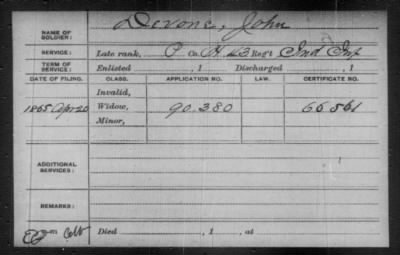 NAME OF SOLDIER: Devone, John
SERVICE: Late rank, P Co. H 43 Reg't Ind Inf
TERM OF SERVICE: Enlisted , 1 Discharged , 1
DATE OF FILING. CLASS. APPLICATION NO. LAW. CERTIFICATE NO.
Invalid,
1865 Apr 20 Widow, 90.380 66.561
Minor,
ADDITIONAL SERVICES:
REMARKS:
Died , 1 , at